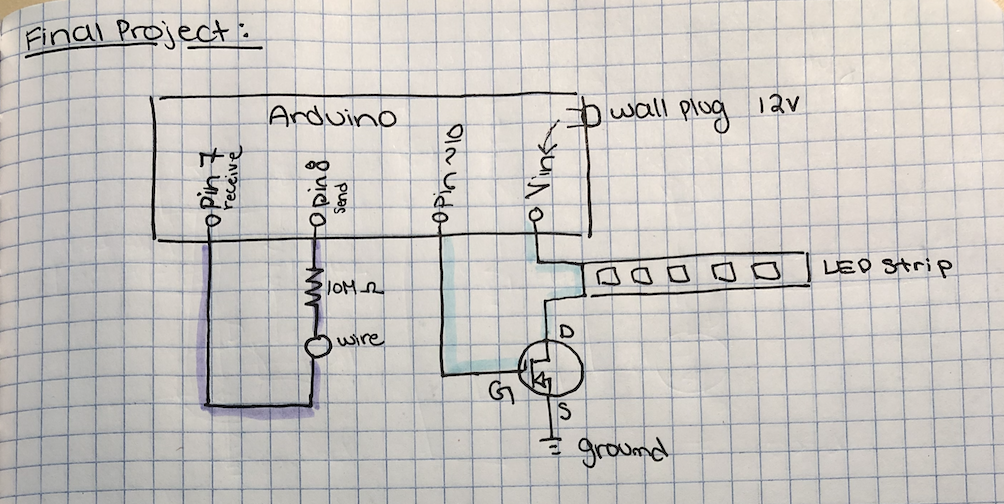 Final Project:
Arduino
wall plug 12V
pin 7
receive
pin 8
send
Pin ~10
Vin
LED strip
10M Ω
wire
D
G
S
ground